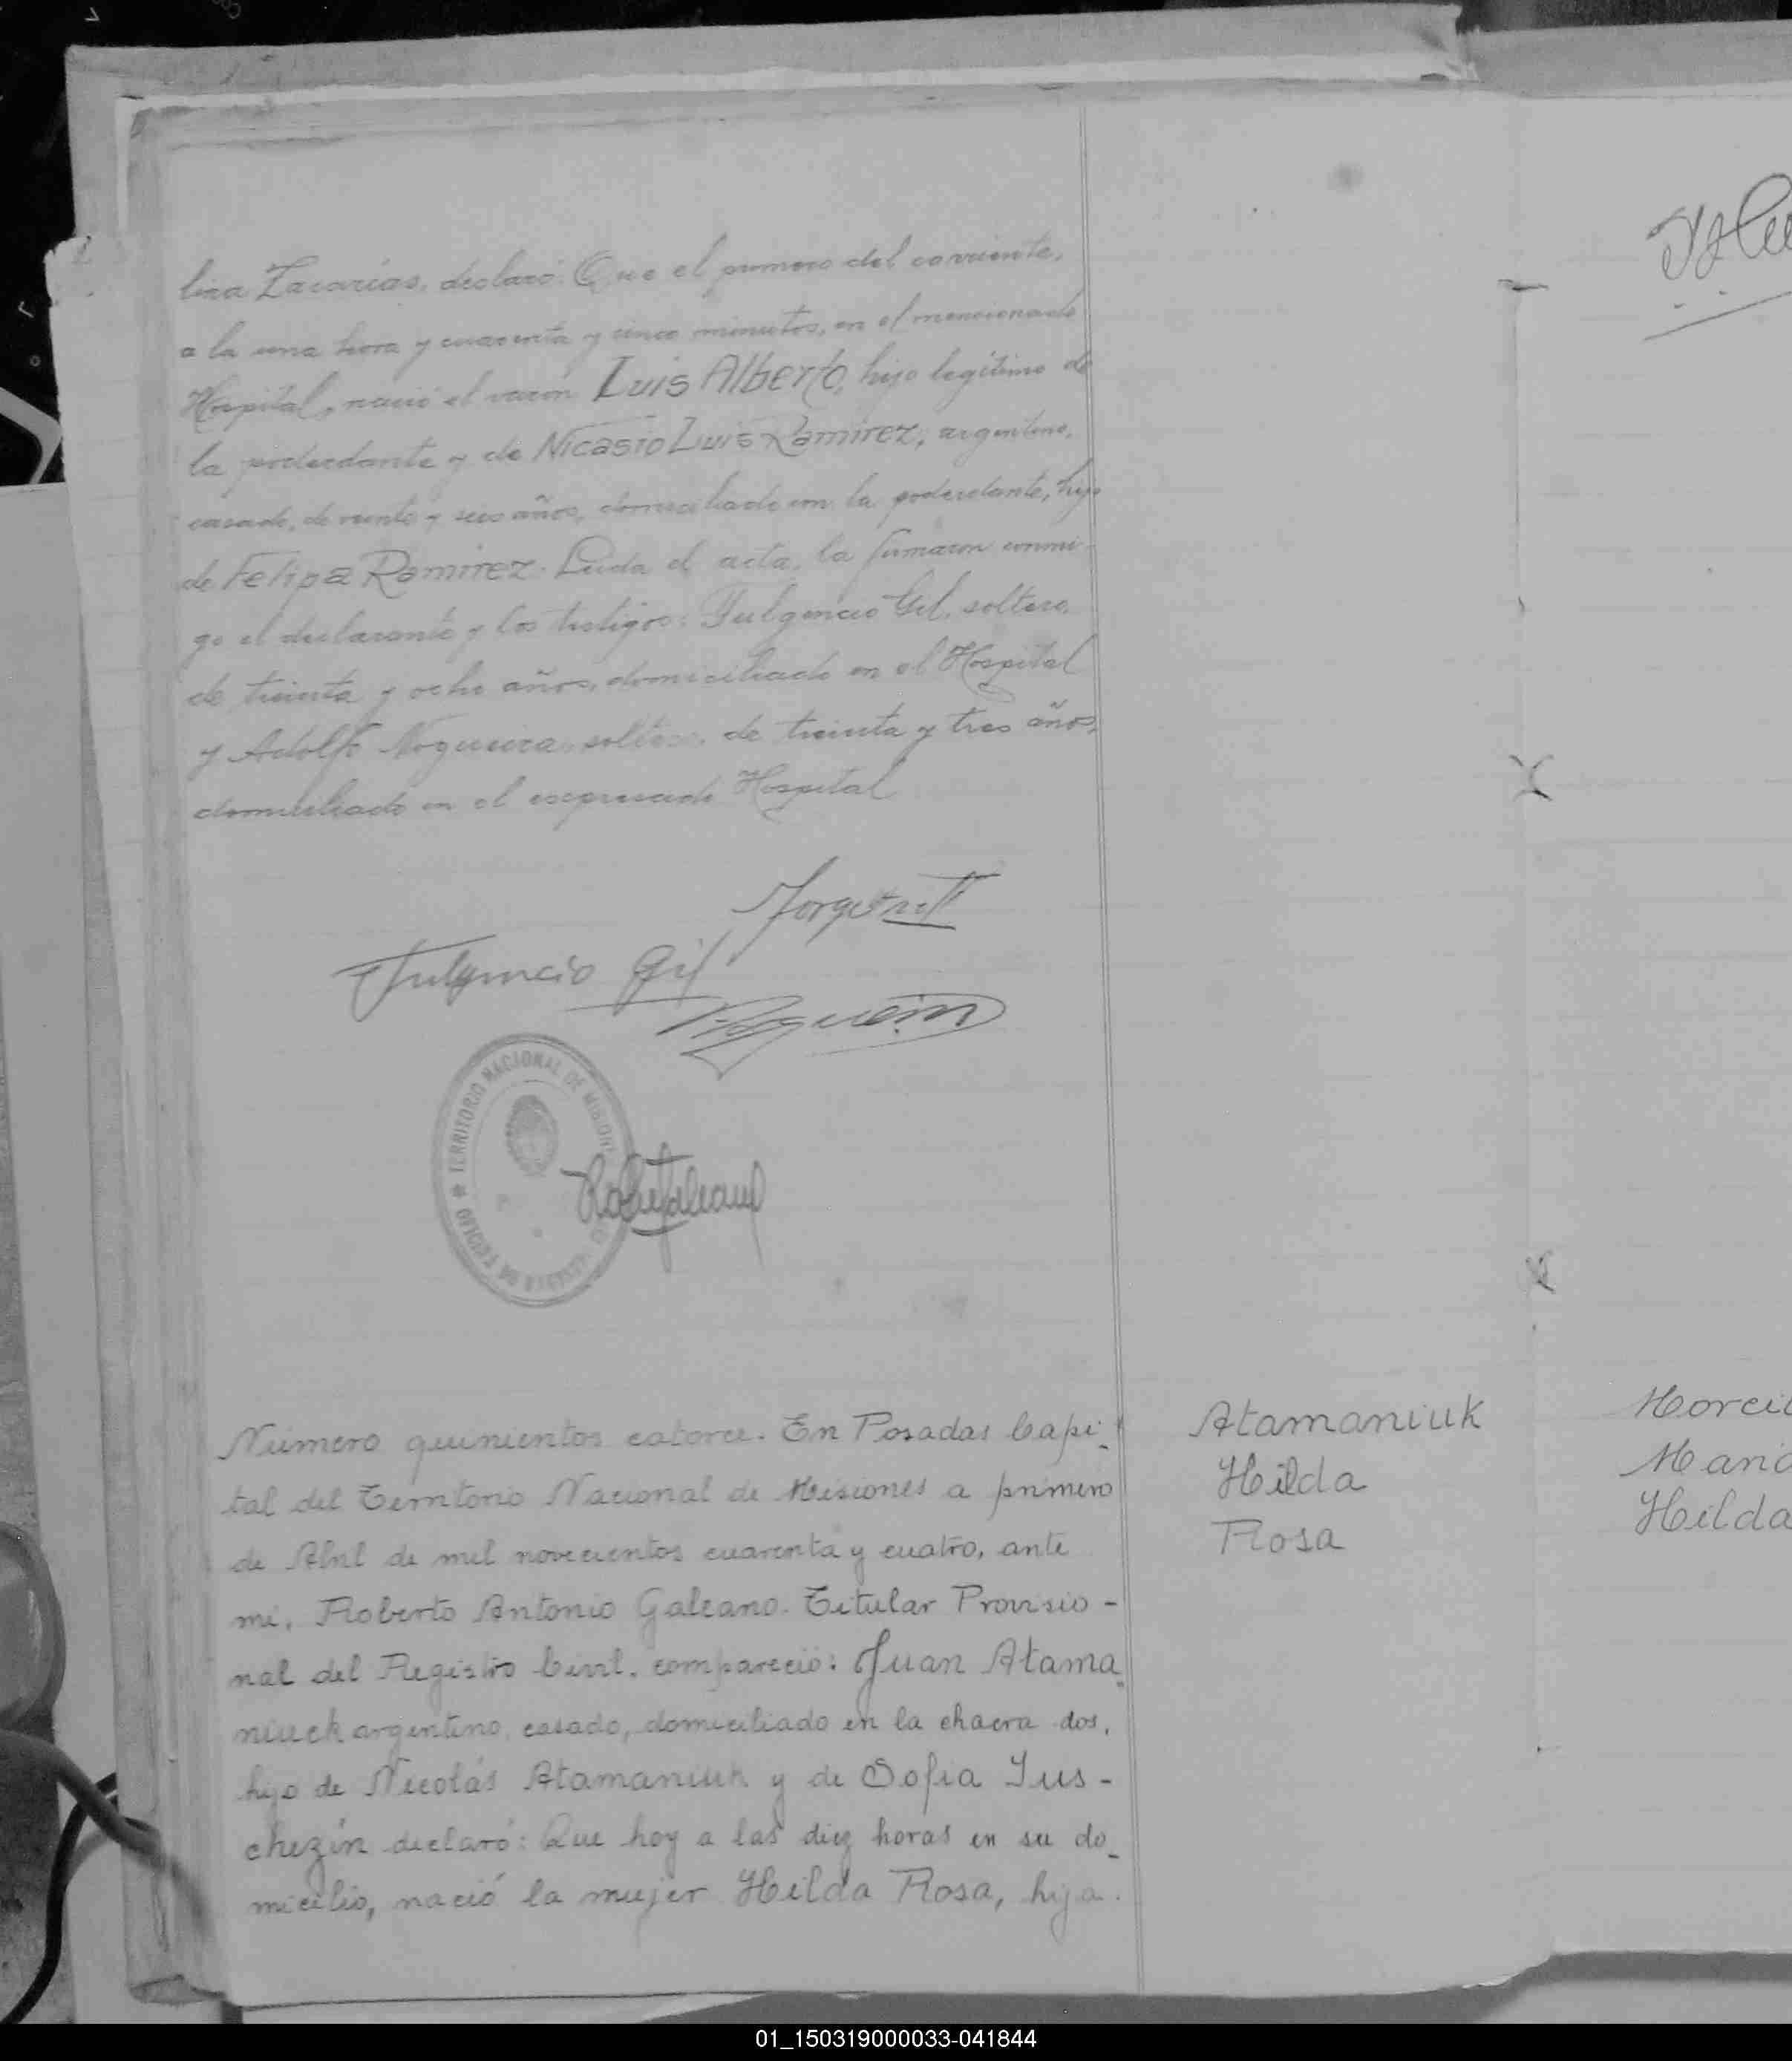 lina Zacarías, declaró: Que el primero del corriente,
a la una hora y cuarenta y cinco minutos, en el mencionado
Hospital, nació el varon Luis Alberto, hijo legítimo de
la poderdante y de Nicasio Luis Ramirez, argentino,
casado, de veinte y seis años, domiciliado con la poderdante, hijo
de Felipa Ramirez. Leida el acta, la firmaron conmi-
go el declarante y los testigos: Fulgencio Gil, soltero,
de treinta y ocho años, domiciliado en el Hospital
y Adolfo Nogueira, soltero, de treinta y tres años,
domiciliado en el expresado Hospital
Fulgencio Gil
TERRITORIO NACIONAL DE MISIONES
Número quinientos catorce. En Posadas Capi-
tal del Territorio Nacional de Misiones a primero
de Abril de mil novecientos cuarenta y cuatro, ante
mi, Roberto Antonio Galeano. Titular Provisio-
nal del Registro Civil, compareció: Juan Atama
niuck argentino, casado, domiciliado en la chacra dos,
hijo de Nicolás Atamaniuk y de Sofia Jus-
chezín declaró: Que hoy a las diez horas en su do-
micilio, nació la mujer Hilda Rosa, hija.
Atamaniuk
Hilda
Rosa
Hilda
01_150319000033-041844